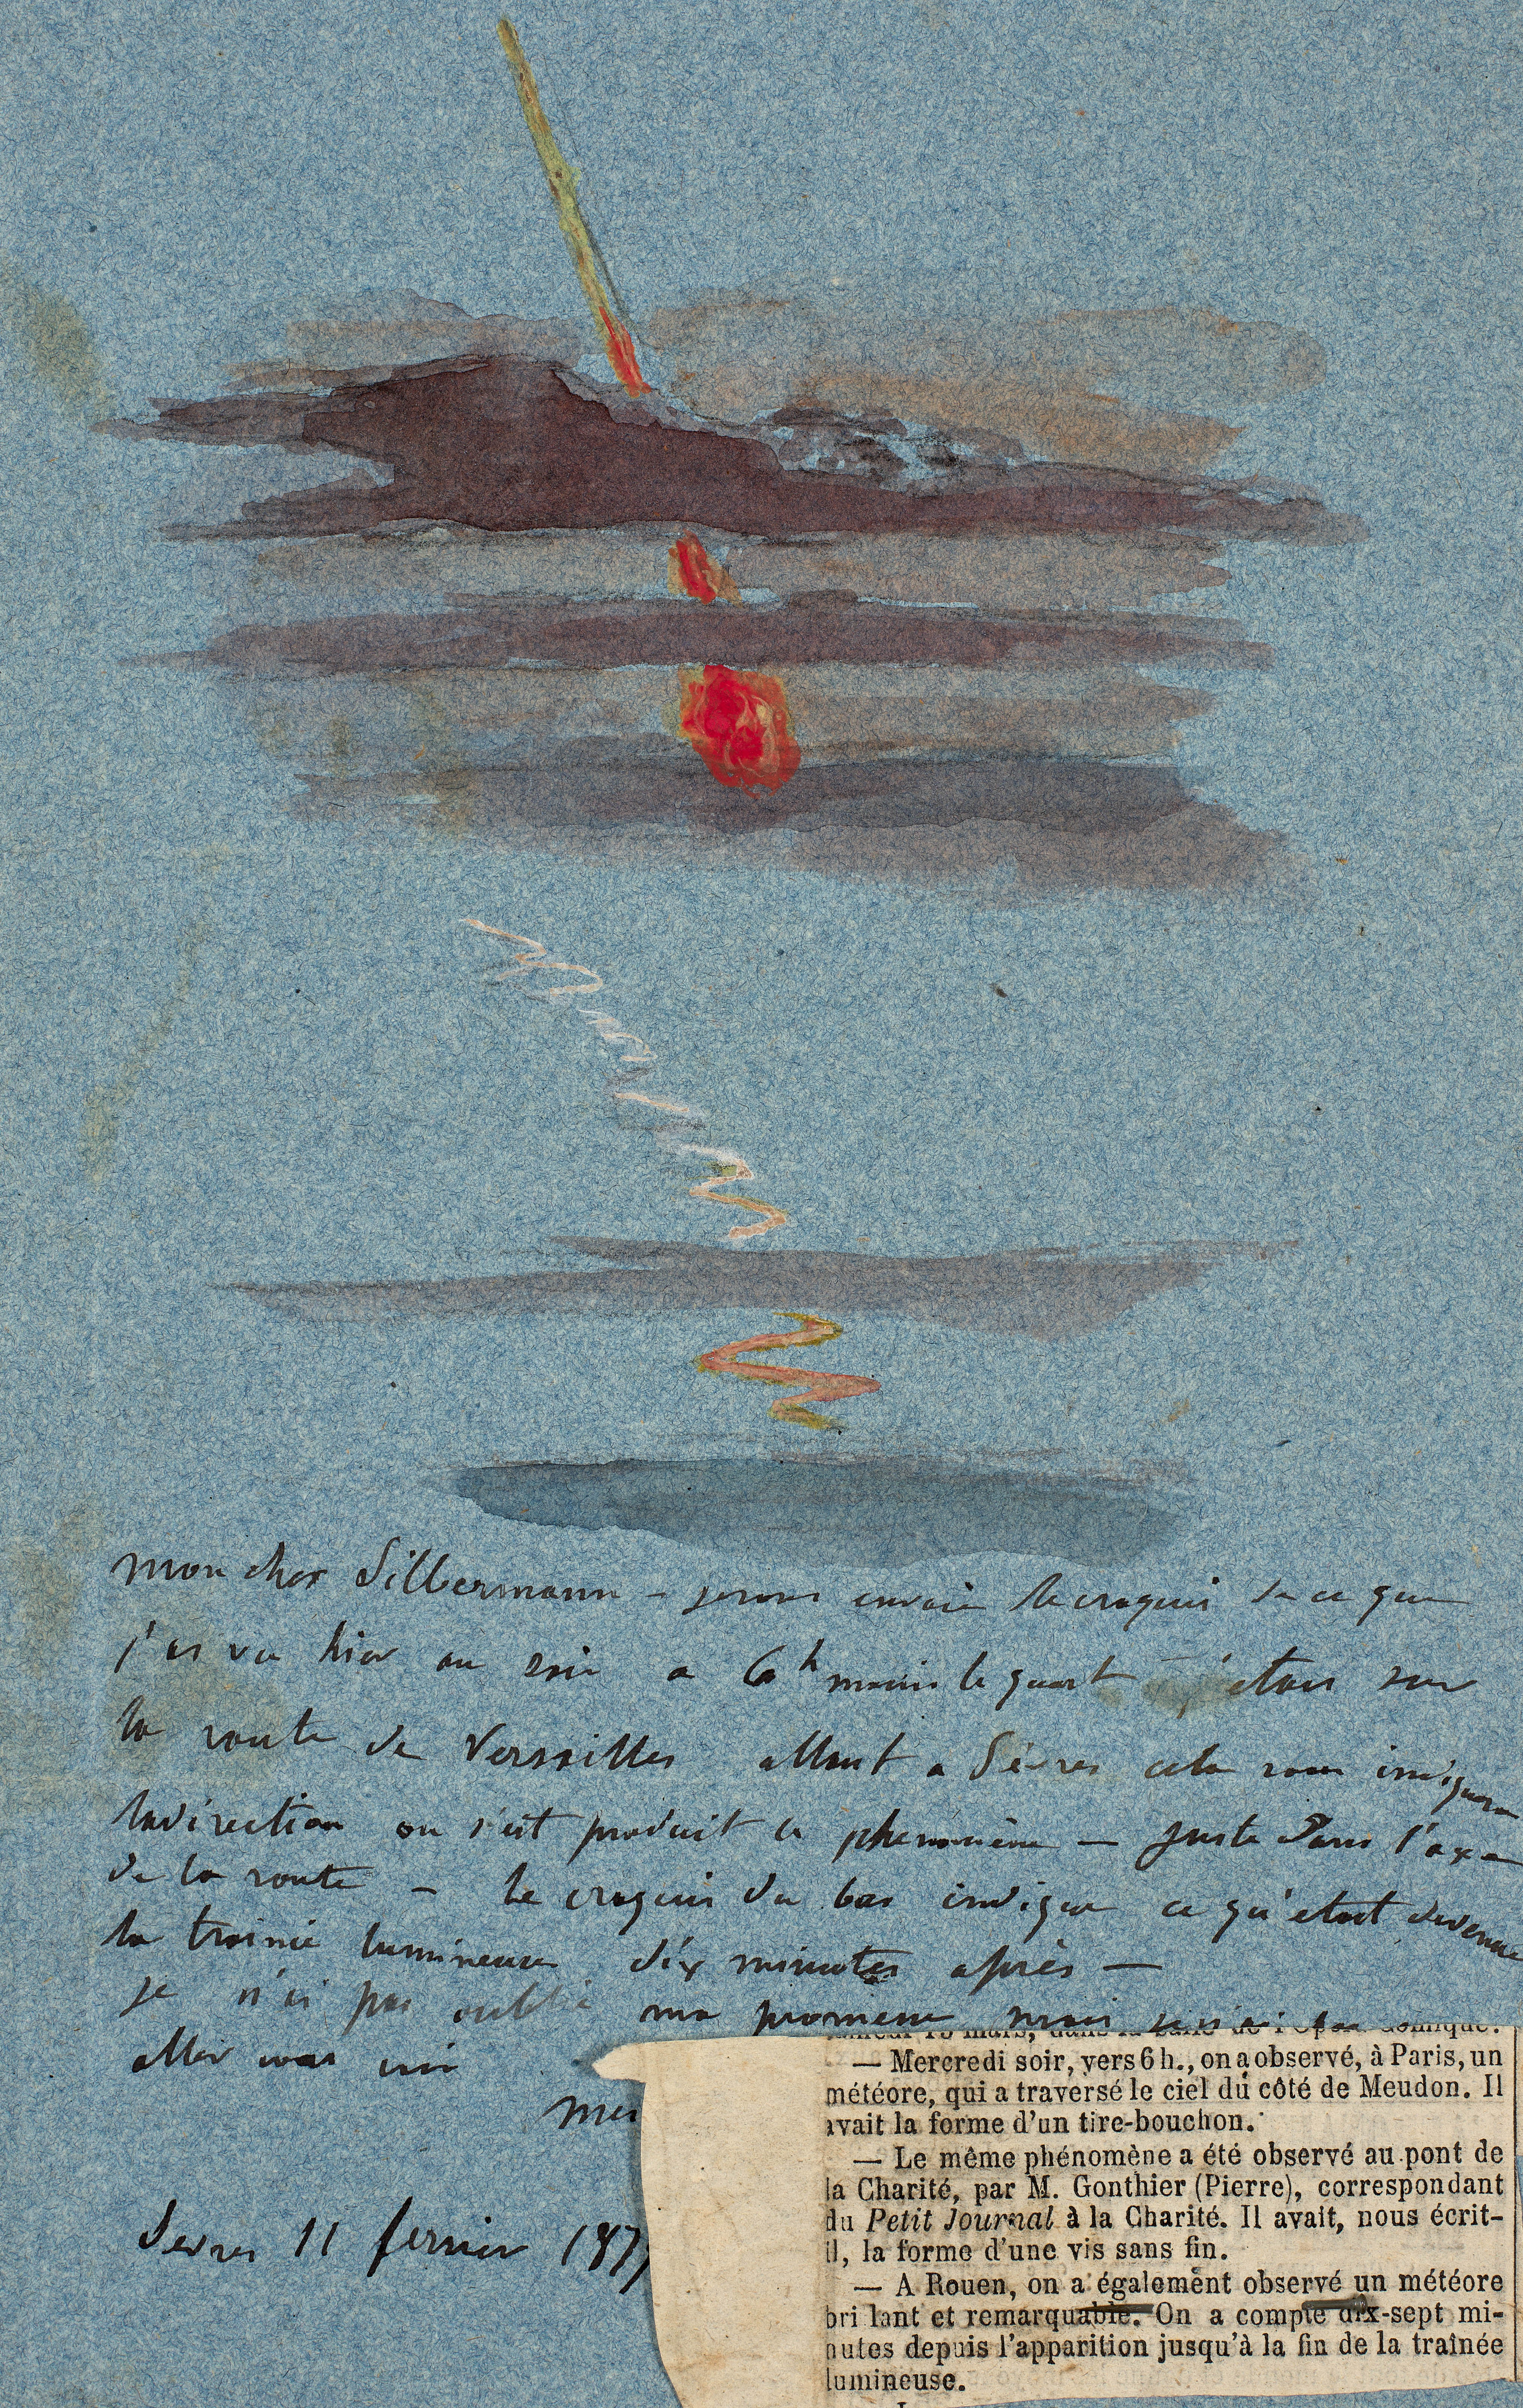 mon cher Silbermann – je vous envoie le croquis de ce que
j'ai vu hier au soir a 6h moins le quart j'etais sur
la route de Versailles allant a Sèvres cela vous indiquera
la direction ou s'est produit ce phenomène – juste dans l'axe
de la route – le croquis du bas indique ce qu'etait devenue
la trainée lumineuse dix minutes après –
je n'ai pas oublié ma promesse mais je n'ai pu
aller vous voir
Sevres 11 fevrier 187
— Mercredi soir, vers 6 h., on a observé, à Paris, un
météore, qui a traversé le ciel du côté de Meudon. Il
avait la forme d'un tire-bouchon.
— Le même phénomène a été observé au pont de
la Charité, par M. Gonthier (Pierre), correspondant
du Petit Journal à la Charité. Il avait, nous écrit-
il, la forme d'une vis sans fin.
— A Rouen, on a également observé un météore
bri lant et remarquable. On a compté dix-sept mi-
nutes depuis l'apparition jusqu'à la fin de la traînée
lumineuse.